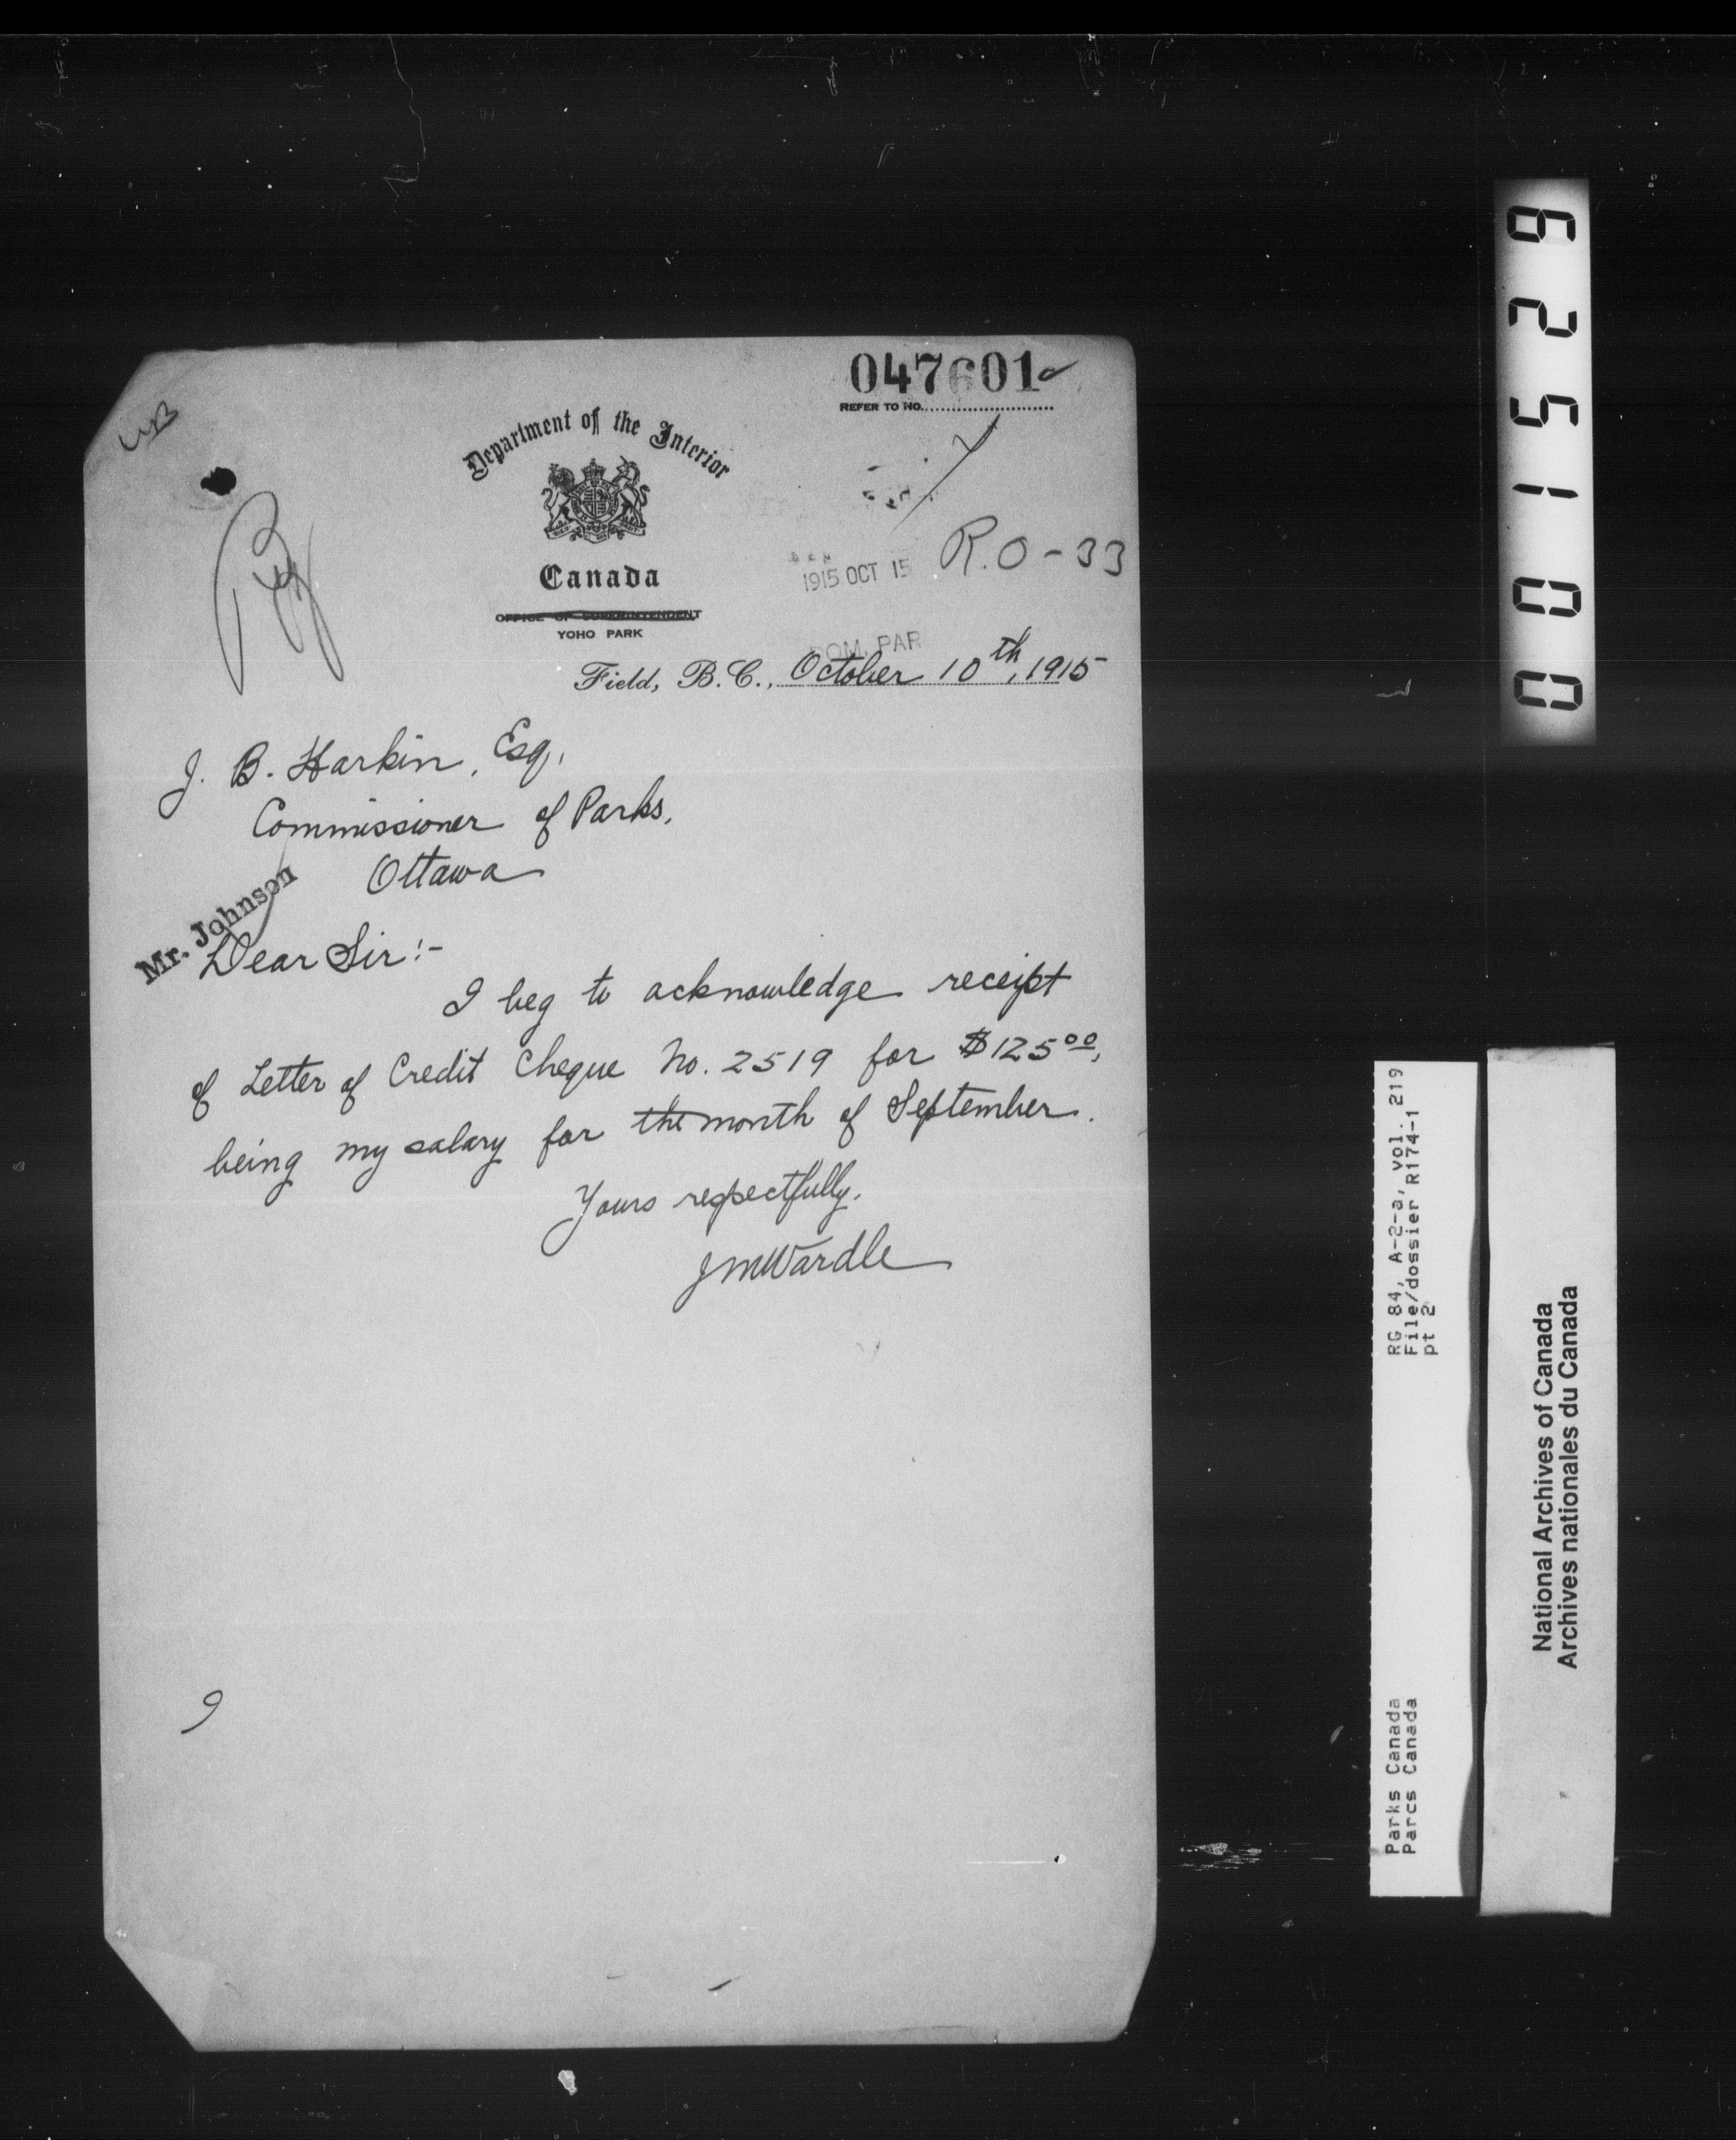 047601
REFER TO NO.
Department of the Interior
Canada
OFFICE OF SUPERINTENDENT
YOHO PARK
1915 OCT 15
R.O-33
DOM. PAR
Field, B.C., October 10th, 1915
J. B. Harkin, Esq,
Commissioner of Parks,
Ottawa
Mr. Johnson
Dear Sir:-
I beg to acknowledge receipt
of Letter of Credit Cheque No. 2519 for $125.00,
being my salary for the month of September.
Yours respectfully,
JMWardle
9
001529
RG 84, A-2-a, vol. 219
File/dossier R174-1
pt 2
Parks Canada
Parcs Canada
National Archives of Canada
Archives nationales du Canada